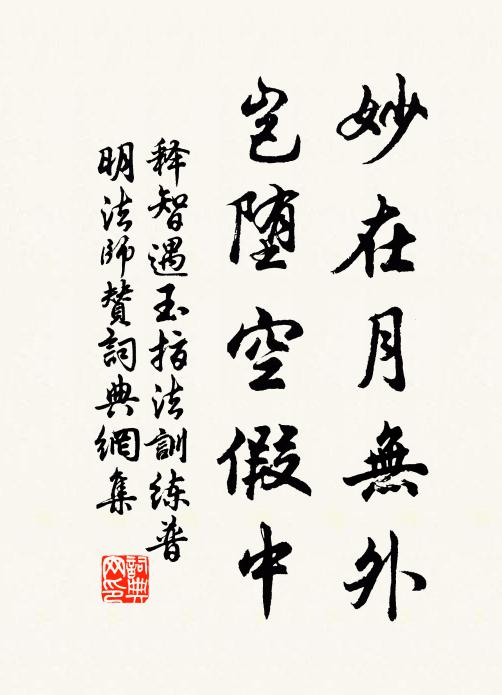 妙在月無外
岂墮空假中
释智遇玉指法訓练普
明法師赞詞典網集
詞典网印